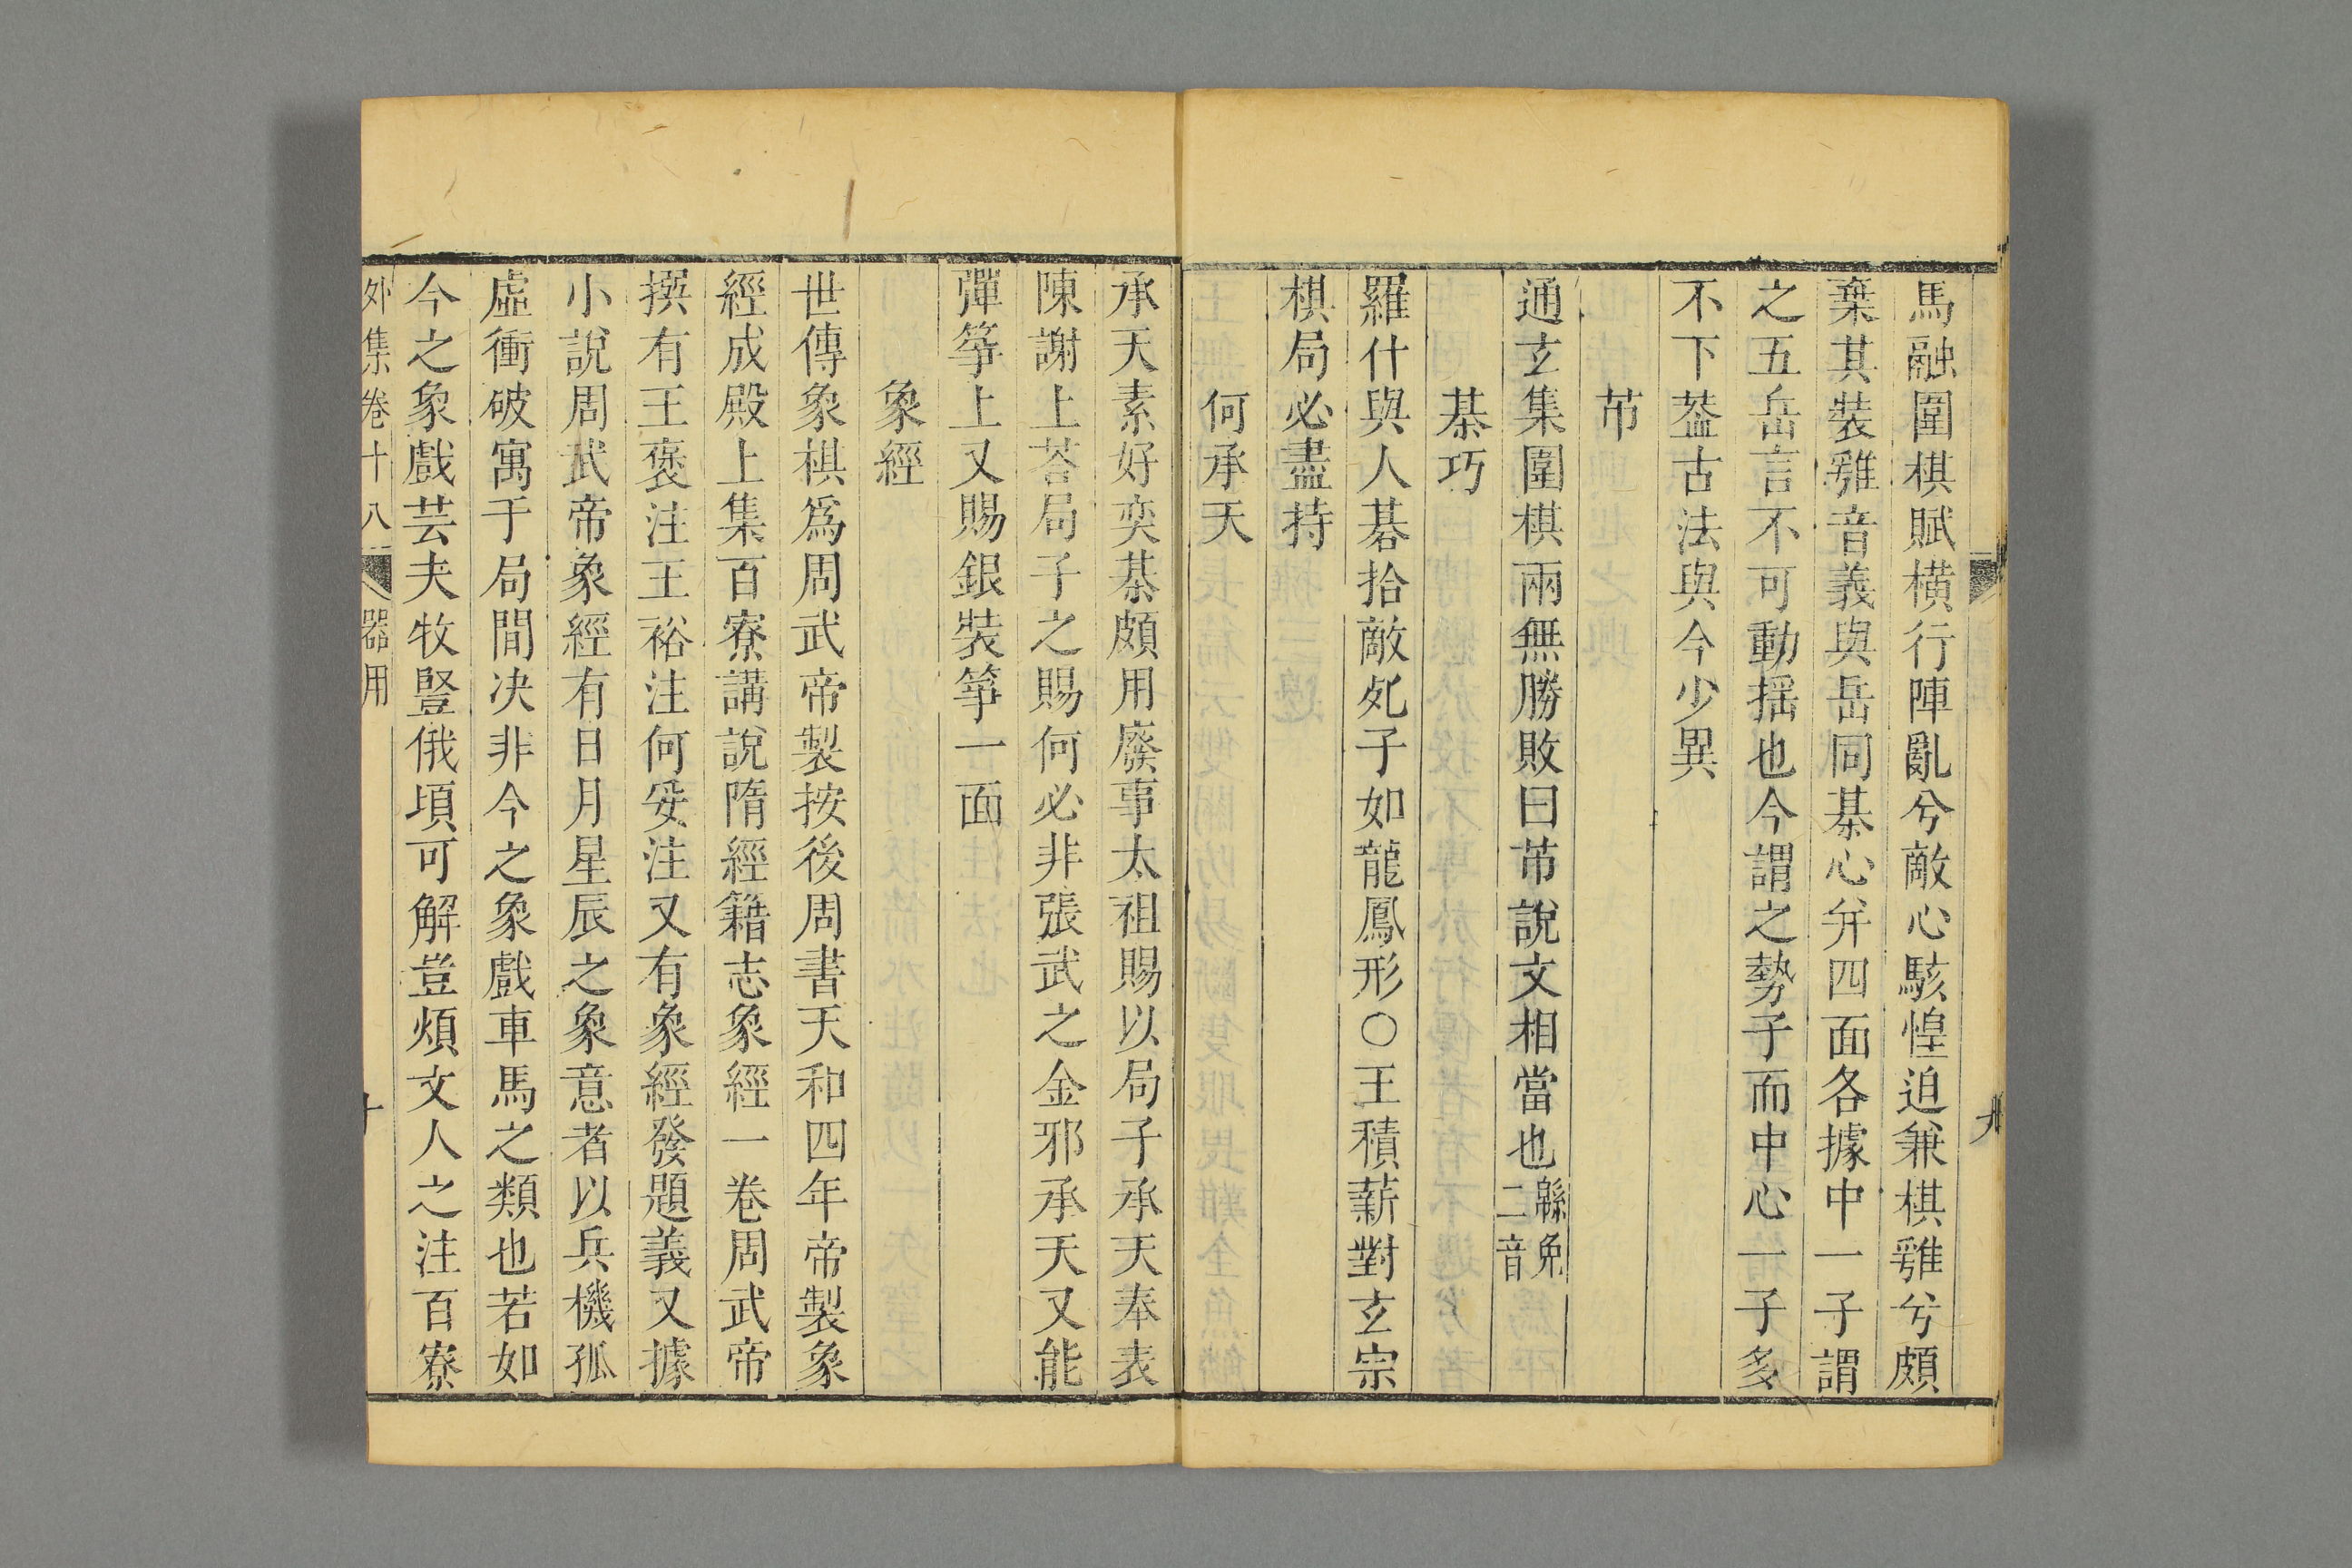 馬融圍棋賦橫行陣亂兮敵心駭惶迫兼棋雞兮頗
棄其裝雞音義與岳同棊心并四面各據中一子謂
之五岳言不可動揺也今謂之勢子而中心一子多
不下葢古法與今少異
芇
通玄集圍棋兩無勝敗曰芇說文相當也緜免
二音
棊巧
羅什與人碁拾敵死子如龍鳳形〇王積薪對玄宗
棋局必盡持
何承天
承天素好奕棊頗用廢事太祖賜以局子承天奉表
陳謝上荅局子之賜何必非張武之金邪承天又能
彈筝上又賜銀裝箏一面
象經
世傳象棋爲周武帝製按後周書天和四年帝製象
經成殿上集百寮講說隋經籍志象經一卷周武帝
撰有王褒注王裕注何妥注又有象經發題義又據
小說周武帝象經有日月星辰之象意者以兵機孤
虛衝破寓于局間决非今之象戲車馬之類也若如
今之象戲芸夫牧豎俄頃可解豈煩文人之注百寮
外集卷十八
器用
十
九